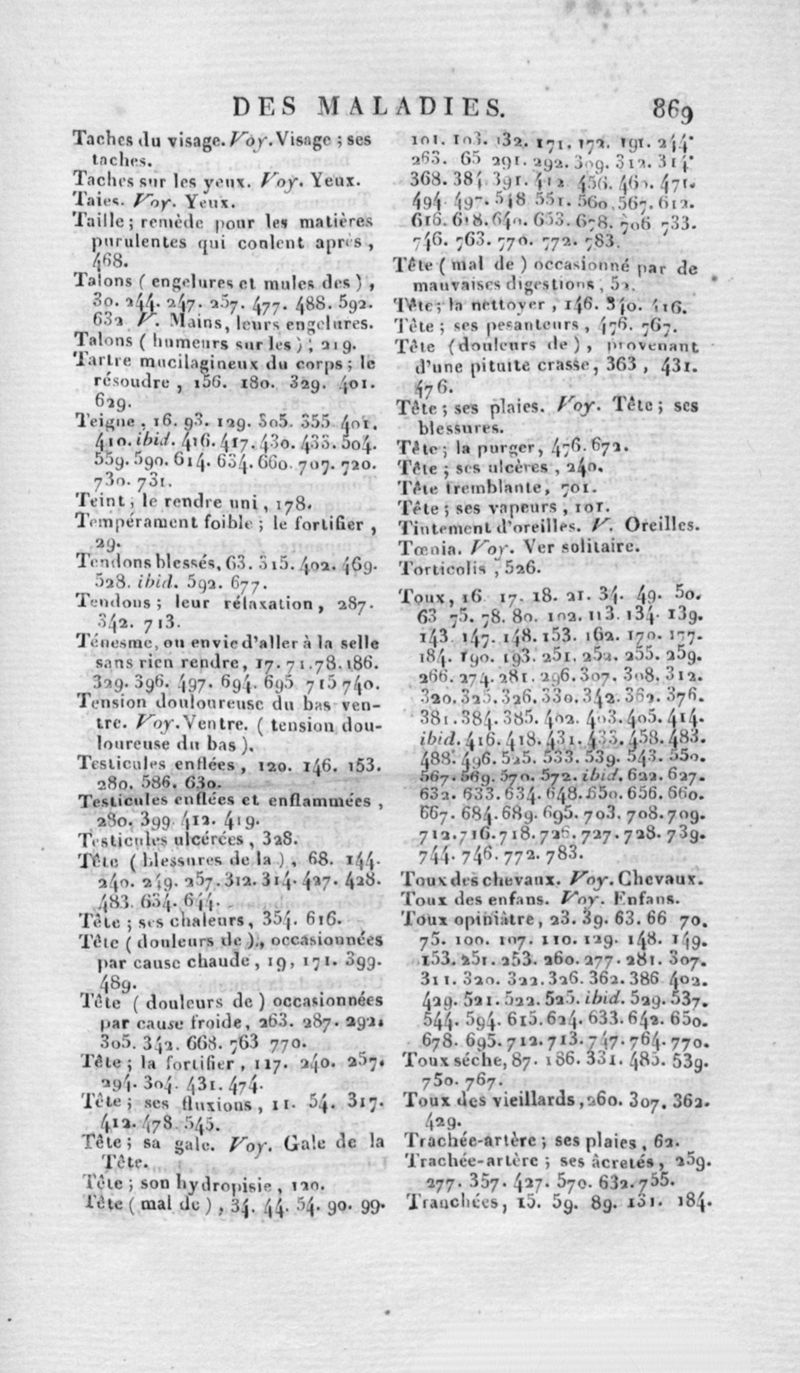 DES MALADIES. 869
Taches du visage. Voy. Visage ; ses
taches.
Taches sur les yeux. Voy. Yeux.
Taies. Voy. Yeux.
Taille ; remède pour les matières
purulentes qui coulent après ,
468.
Talons ( engelures et mules des ) ,
30. 244. 247. 257. 477. 488. 592.
632 V. Mains, leurs engelures.
Talons ( humeurs sur les ) , 219.
Tartre mucilagineux du corps ; le
résoudre , 156. 180. 329. 401.
629.
Teigne , 16. 93. 129. 305. 355 401.
410. ibid. 416. 417. 430. 433. 504.
559. 590. 614. 634. 660. 707. 720.
730. 731.
Teint ; le rendre uni , 178.
Tempérament foible ; le fortifier ,
29.
Tendons blessés, 63. 315. 402. 469.
528. ibid. 592. 677.
Tendons ; leur rélaxation, 287.
342. 713.
Ténesme, ou envie d'aller à la selle
sans rien rendre, 17. 71. 78. 186.
329. 396. 497. 694. 695 715 740.
Tension douloureuse du bas ven-
tre. Voy. Ventre. ( tension dou-
loureuse du bas ).
Testicules enflées , 120. 146. 153.
280. 586. 630.
Testicules enflées et enflammées ,
280. 399 412. 419.
Testicules ulcérées , 328.
Tête ( blessures de la ) , 68. 144.
240. 249. 257. 312. 314. 427. 428.
483. 634. 644.
Tête ; ses chaleurs, 354. 616.
Tête ( douleurs de ), occasionnées
par cause chaude , 19, 171. 399.
489.
Tête ( douleurs de ) occasionnées
par cause froide, 263. 287. 292.
305. 342. 668. 763 770.
Tête ; la fortifier , 117. 240. 257.
294. 304. 431. 474.
Tête ; ses fluxions , 11. 54. 317.
412. 478. 545.
Tête ; sa gale. Voy. Gale de la
Tête.
Tête ; son hydropisie , 120.
Tête ( mal de ) , 34. 44. 54. 90. 99.
101. 103. 132. 171. 172. 191. 244.
263. 65 291. 292. 309. 312. 314.
368. 384 391. 412 456. 460. 471.
494. 497. 548 551. 560. 567. 612.
616. 618. 640. 653. 678. 706 733.
746. 763. 770. 772. 783.
Tête ( mal de ) occasionné par de
mauvaises digestions , 52.
Tête ; la nettoyer , 146. 340. 416.
Tête ; ses pesanteurs , 476. 767.
Tête ( douleurs de ) , provenant
d'une pituite crasse, 363 , 431.
476.
Tête ; ses plaies. Voy. Tête ; ses
blessures.
Tête ; la purger, 476. 672.
Tête ; ses ulcères , 240.
Tête tremblante, 701.
Tête ; ses vapeurs , 101.
Tintement d'oreilles. V. Oreilles.
Tœnia. Voy. Ver solitaire.
Torticolis , 526.
Toux, 16 17. 18. 21. 34. 49. 50.
63 75. 78. 80. 102. 113. 134. 139.
143. 147. 148. 153. 162. 170. 177.
184. 190. 193. 251. 252. 255. 259.
266. 274. 281. 296. 307. 308. 312.
320. 325. 326. 330. 342. 362. 376.
381. 384. 385. 402. 403. 405. 414.
ibid. 416. 418. 431. 433. 458. 483.
488. 496. 525. 533. 539. 543. 550.
567. 569. 570. 572. ibid. 622. 627.
632. 633. 634. 648. 650. 656. 660.
667. 684. 689. 695. 703. 708. 709.
712. 716. 718. 726. 727. 728. 739.
744. 746. 772. 783.
Toux des chevaux. Voy. Chevaux.
Toux des enfans. Voy. Enfans.
Toux opiniâtre, 23. 39. 63. 66 70.
75. 100. 107. 110. 129. 148. 149.
153. 251. 253. 260. 277. 281. 307.
311. 320. 322. 326. 362. 386 402.
429. 521. 522. 525. ibid. 529. 537.
544. 594. 615. 624. 633. 642. 650.
678. 695. 712. 713. 747. 764. 770.
Toux séche, 87. 186. 331. 485. 539.
750. 767.
Toux des vieillards, 260. 307. 362.
429.
Trachée-artère ; ses plaies , 62.
Trachée-artère ; ses âcretés, 259.
277. 357. 427. 570. 632. 755.
Tranchées, 15. 59. 89. 131. 184.